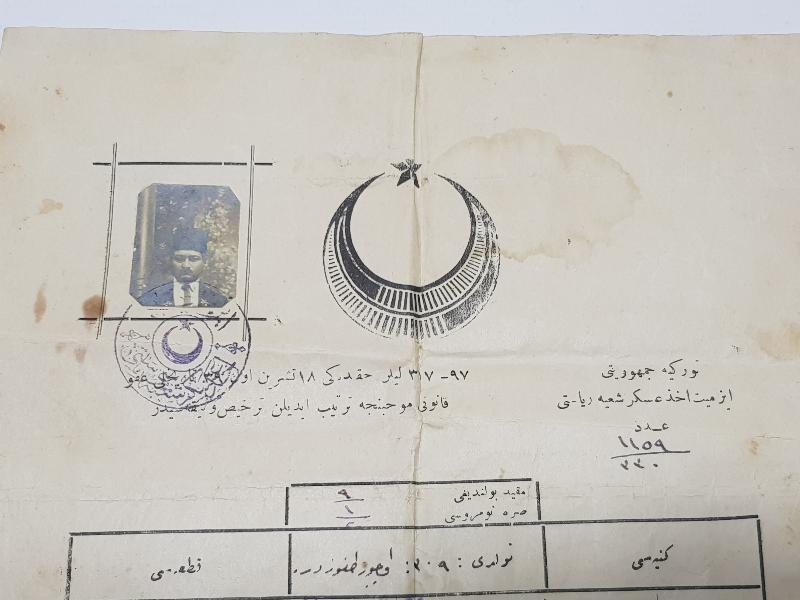 توركیه جمهوریتی
ازمیت اخذ عسكر شعبه ریاستی
عدد
١١٥٩
٣٣٠
٩٧- ٣١٧ لیلر حقندكی ١٨ تشرین اول ٣٣٩ عفو
قانونی موجبنجه ترتیب ایدیلن ترخیص وثیقه سیدر
مقید بولندیغی
صره نومروسی
٩
١
كنیه سی
تولدی : ٣٠٩ : اوچیوز طقوزدر.
قطعه سی